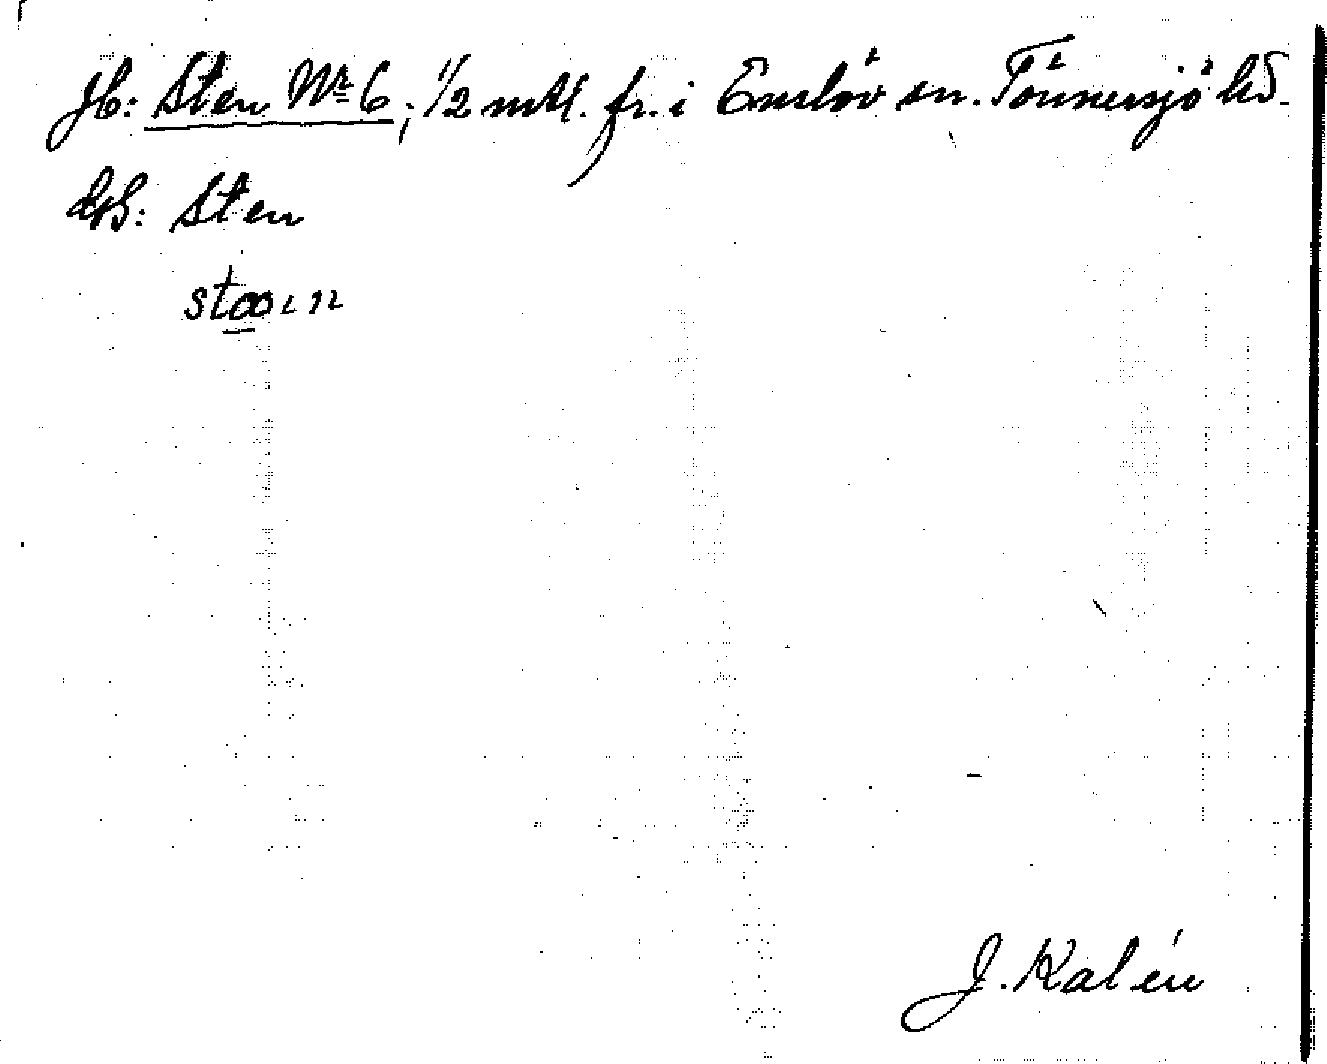 Jb: Sten No 6; 1/2 mtl. fr. i Enslöv sn. Tönnersjö hd.
GK: Sten
stœın
J. Kalén